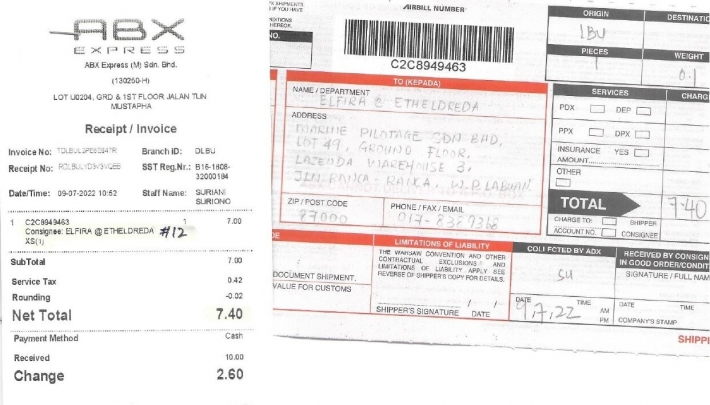 ABX
EXPRESS
ABX Express (M) Sdn. Bhd.
(130260-H)
LOT U0204, GRD & 1ST FLOOR JALAN TUN
MUSTAPHA
Receipt / Invoice
Invoice No:
Branch ID: DLBU
Receipt No:
SST Reg.Nr.: B16-1808-
32000184
Date/Time: 09-07-2022 10:52
Staff Name: SURIANI
SURIONO
1 C2C8949463 1 7.00
Consignee: ELFIRA @ ETHELDREDA #12
XS(1)
SubTotal 7.00
Service Tax 0.42
Rounding -0.02
Net Total 7.40
Payment Method Cash
Received 10.00
Change 2.60
AIRBILL NUMBER
C2C8949463
NO.
TO (KEPADA)
NAME / DEPARTMENT
ELFIRA @ ETHELDREDA
ADDRESS
MARINE PILOTAGE SDN BHD,
LOT 49, GROUND FLOOR,
LAZENDA WAREHOUSE 3,
JLN RANCA-RANCA, W.P. LABUAN
ZIP / POST CODE
87000
PHONE / FAX / EMAIL
DOCUMENT SHIPMENT.
VALUE FOR CUSTOMS
LIMITATIONS OF LIABILITY
THE WARSAW CONVENTION AND OTHER
CONTRACTUAL EXCLUSIONS AND
LIMITATIONS OF LIABILITY APPLY SEE
REVERSE OF SHIPPER'S COPY FOR DETAILS.
/ /
SHIPPER'S SIGNATURE DATE
ORIGIN
LBU
DESTINATIO
PIECES
1
WEIGHT
0.1
SERVICES
CHARG
PDX DEP
PPX DPX
INSURANCE YES
AMOUNT
OTHER
TOTAL 7.40
CHARGE TO: SHIPPER
ACCOUNT NO. CONSIGNEE
COLLECTED BY ABX
SU
DATE TIME
9,7,22 AM
PM
RECEIVED BY CONSIGN
IN GOOD ORDER/CONDIT
SIGNATURE / FULL NAM
DATE TIME
COMPANY'S STAMP
SHIPPE